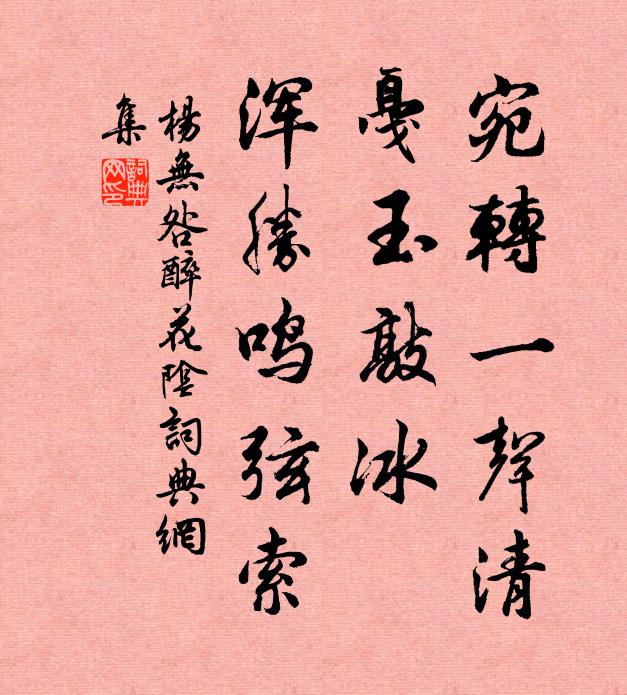 宛轉一聲清
戛玉敲冰
浑勝鸣弦索
楊無咎醉花陰詞典網
集
詞典网印